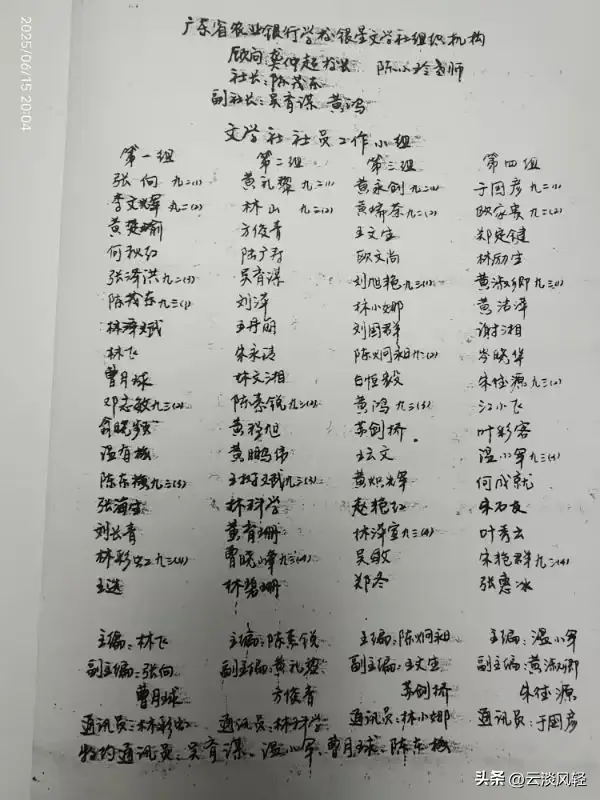 2025/06/15 20:04
广东省农业银行学校银星文学社组织机构
顾问:龚仲超校长 陈小玲老师
社长:陈茂东
副社长:吴育谋 黄鸿
文学社社员工作小组
第一组 第二组 第三组 第四组
张向九二(1) 黄礼黎九二(1) 黄永剑九二(1) 于国彦九二(1)
李文辉九二(2) 林山九二(2) 黄 九二(2) 欧家 九二(2)
黄楚瑜 方俊青 王文生 郑定键
何秋红 陆广寿 欧文尚 林励生
张泽洪九二(3) 吴育谋 刘旭艳九三(1) 黄淑卿九三(1)
陈茂东九三(1) 刘泽 林小娜 黄洁泽
林泽斌 王丹丽 刘国群 谢湘
林飞 朱永清 陈炯祖九三(2) 岑晓华
曹月球 林文湘 白恒毅 朱佳源九三(2)
邓志敏九三(2) 陈素锐九三(2) 黄鸿九三(3) 江小飞
翁晓 黄 旭 苏剑桥 叶彩客
温育梅 黄鹏伟 王云文 温小军九三(3)
陈东梅九三(3) 王树斌九三(3) 黄炽辉 何成就
张海生 林科学 赵艳红 朱石友
刘长青 黄育珊 林泽宣九三(4) 叶秀云
林彩虹九三(4) 曹晓峰九三(4) 吴敏 宋艳群九三(4)
王选 林碧珊 郑冬 张惠冰
主编:林飞 主编:陈素锐 主编:陈炯祖 主编:温小军
副主编:张向 副主编:黄礼黎 副主编:王文生 副主编:黄淑卿
曹月球 方俊青 苏剑桥 朱佳源
通讯员:林彩虹 通讯员:林科学 通讯员:林小娜 通讯员:于国彦
特约通讯员:吴育谋、温小军、曹月球、陈东梅
头条 @云淡风轻